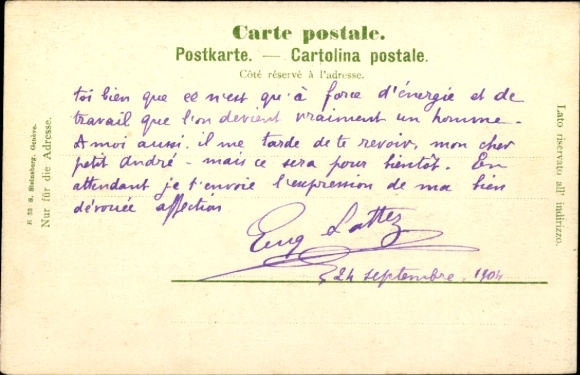 Carte postale.
Postkarte. — Cartolina postale.
Côté réservé à l'adresse.
toi bien que ce n'est qu'à force d'énergie et de
travail que l'on devient vraiment un homme.
A moi aussi, il me tarde de te revoir, mon cher
petit André - mais ce sera pour bientôt. En
attendant je t'envoie l'expression de ma bien
dévouée affection
Eug Lattez
24 septembre. 1904
Nur für die Adresse.
Lato riservato all' indirizzo.